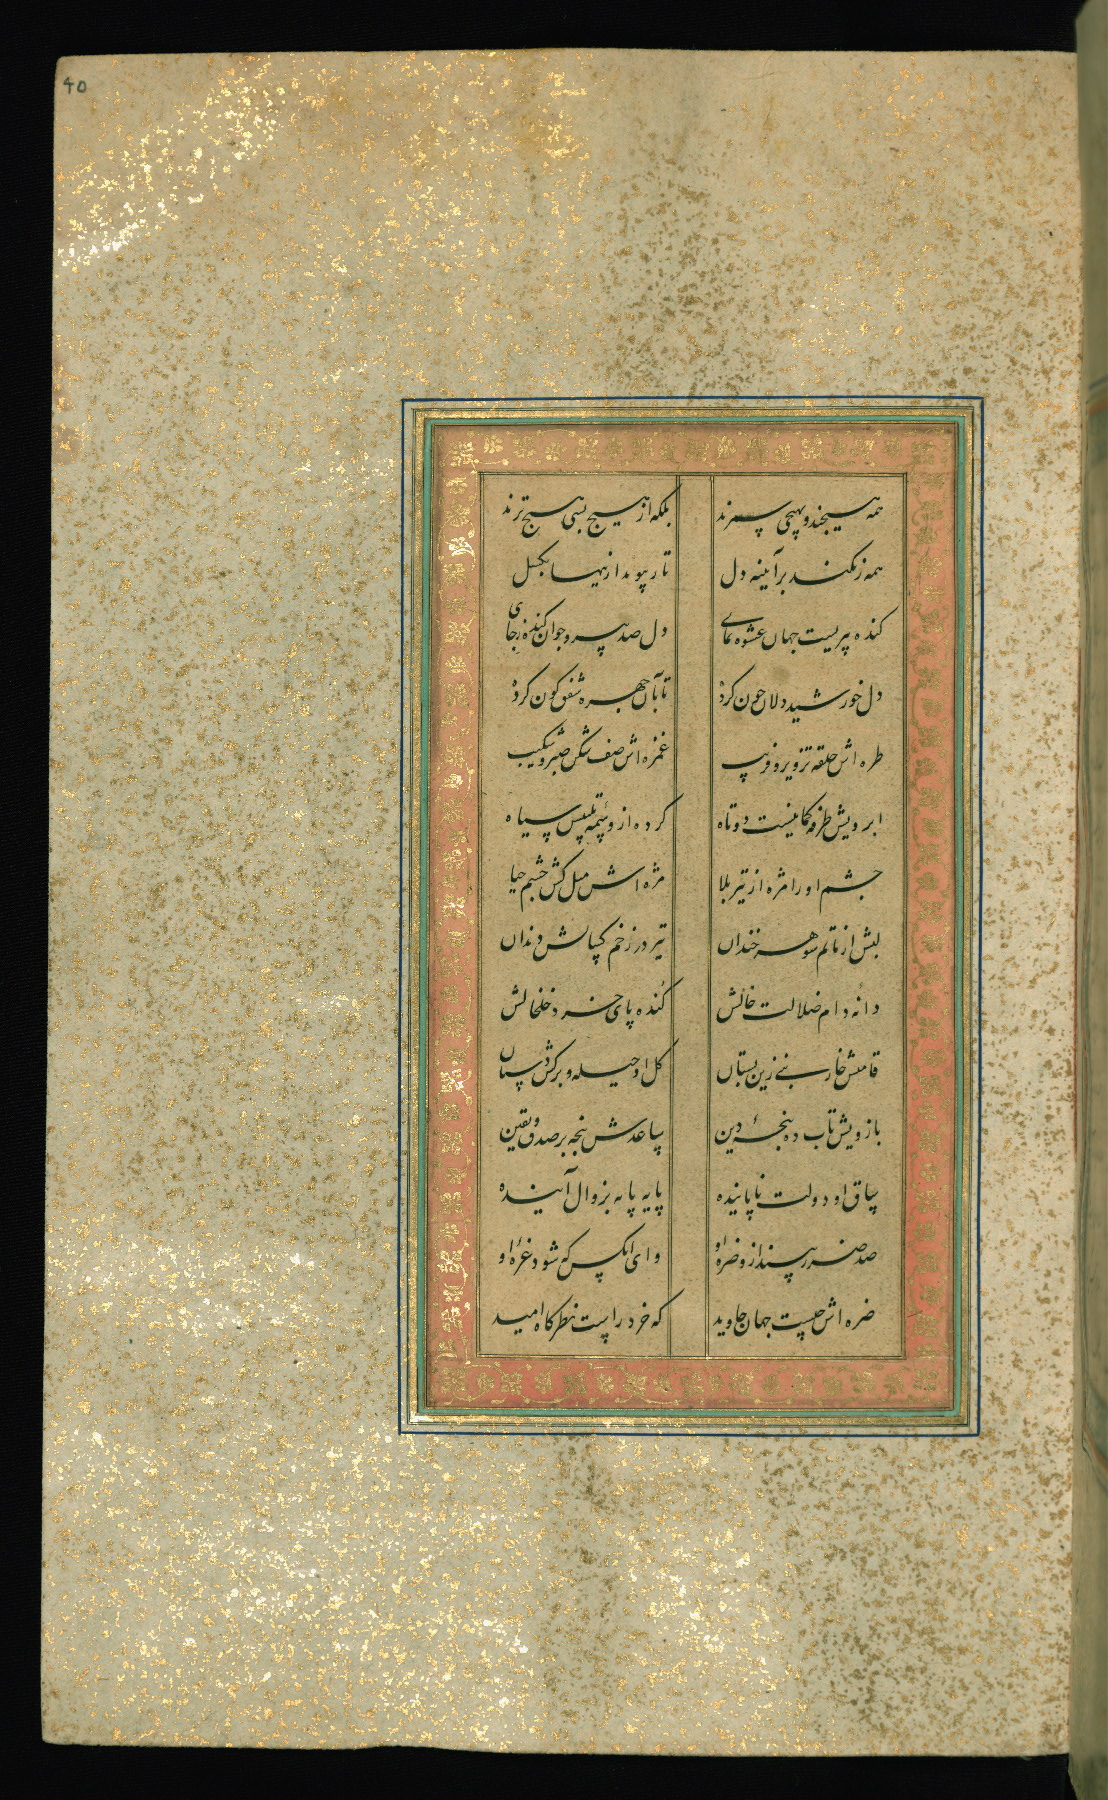 40
همه هیچند و بهیچی سمرند بلکه از هیچ بسی هیچ ترند
همه زنکند بر آینه دل تار پوند از ینها بکسل
کنده پیریست جهان عشوه نمای دل صد پیر و جوان کنده ز جای
دل خورشید دلان خون کرده تابآن چهره شفق کون کرده
طره اش حلقه تزویر و فریب غمزه اش صف شکن صبر و شکیب
ابرویش طرفه کمانیست دوتاه کرده از وسمه تلبیس سیاه
چشم او را مژه از تیر بلا مژه اش میل کش چشم حیا
لبش از ماتم شوهر خندان تیر در زخم کسانش دندان
دانه دام ضلالت خالش کنده پای خرد خلخالش
قامتش خار بنی زین بستان کل او حیله و برکش دستان
بازویش تاب ده پنجه دین ساعدش پنجه بر صدق و یقین
ساق او دولت ناپاینده پایه پایه بزوال آینده
صد ضرر بیند از و ضره او وای انکس که شود غره او
ضره اش چیست جهان جاوید که خرد راست نظرکاه امید